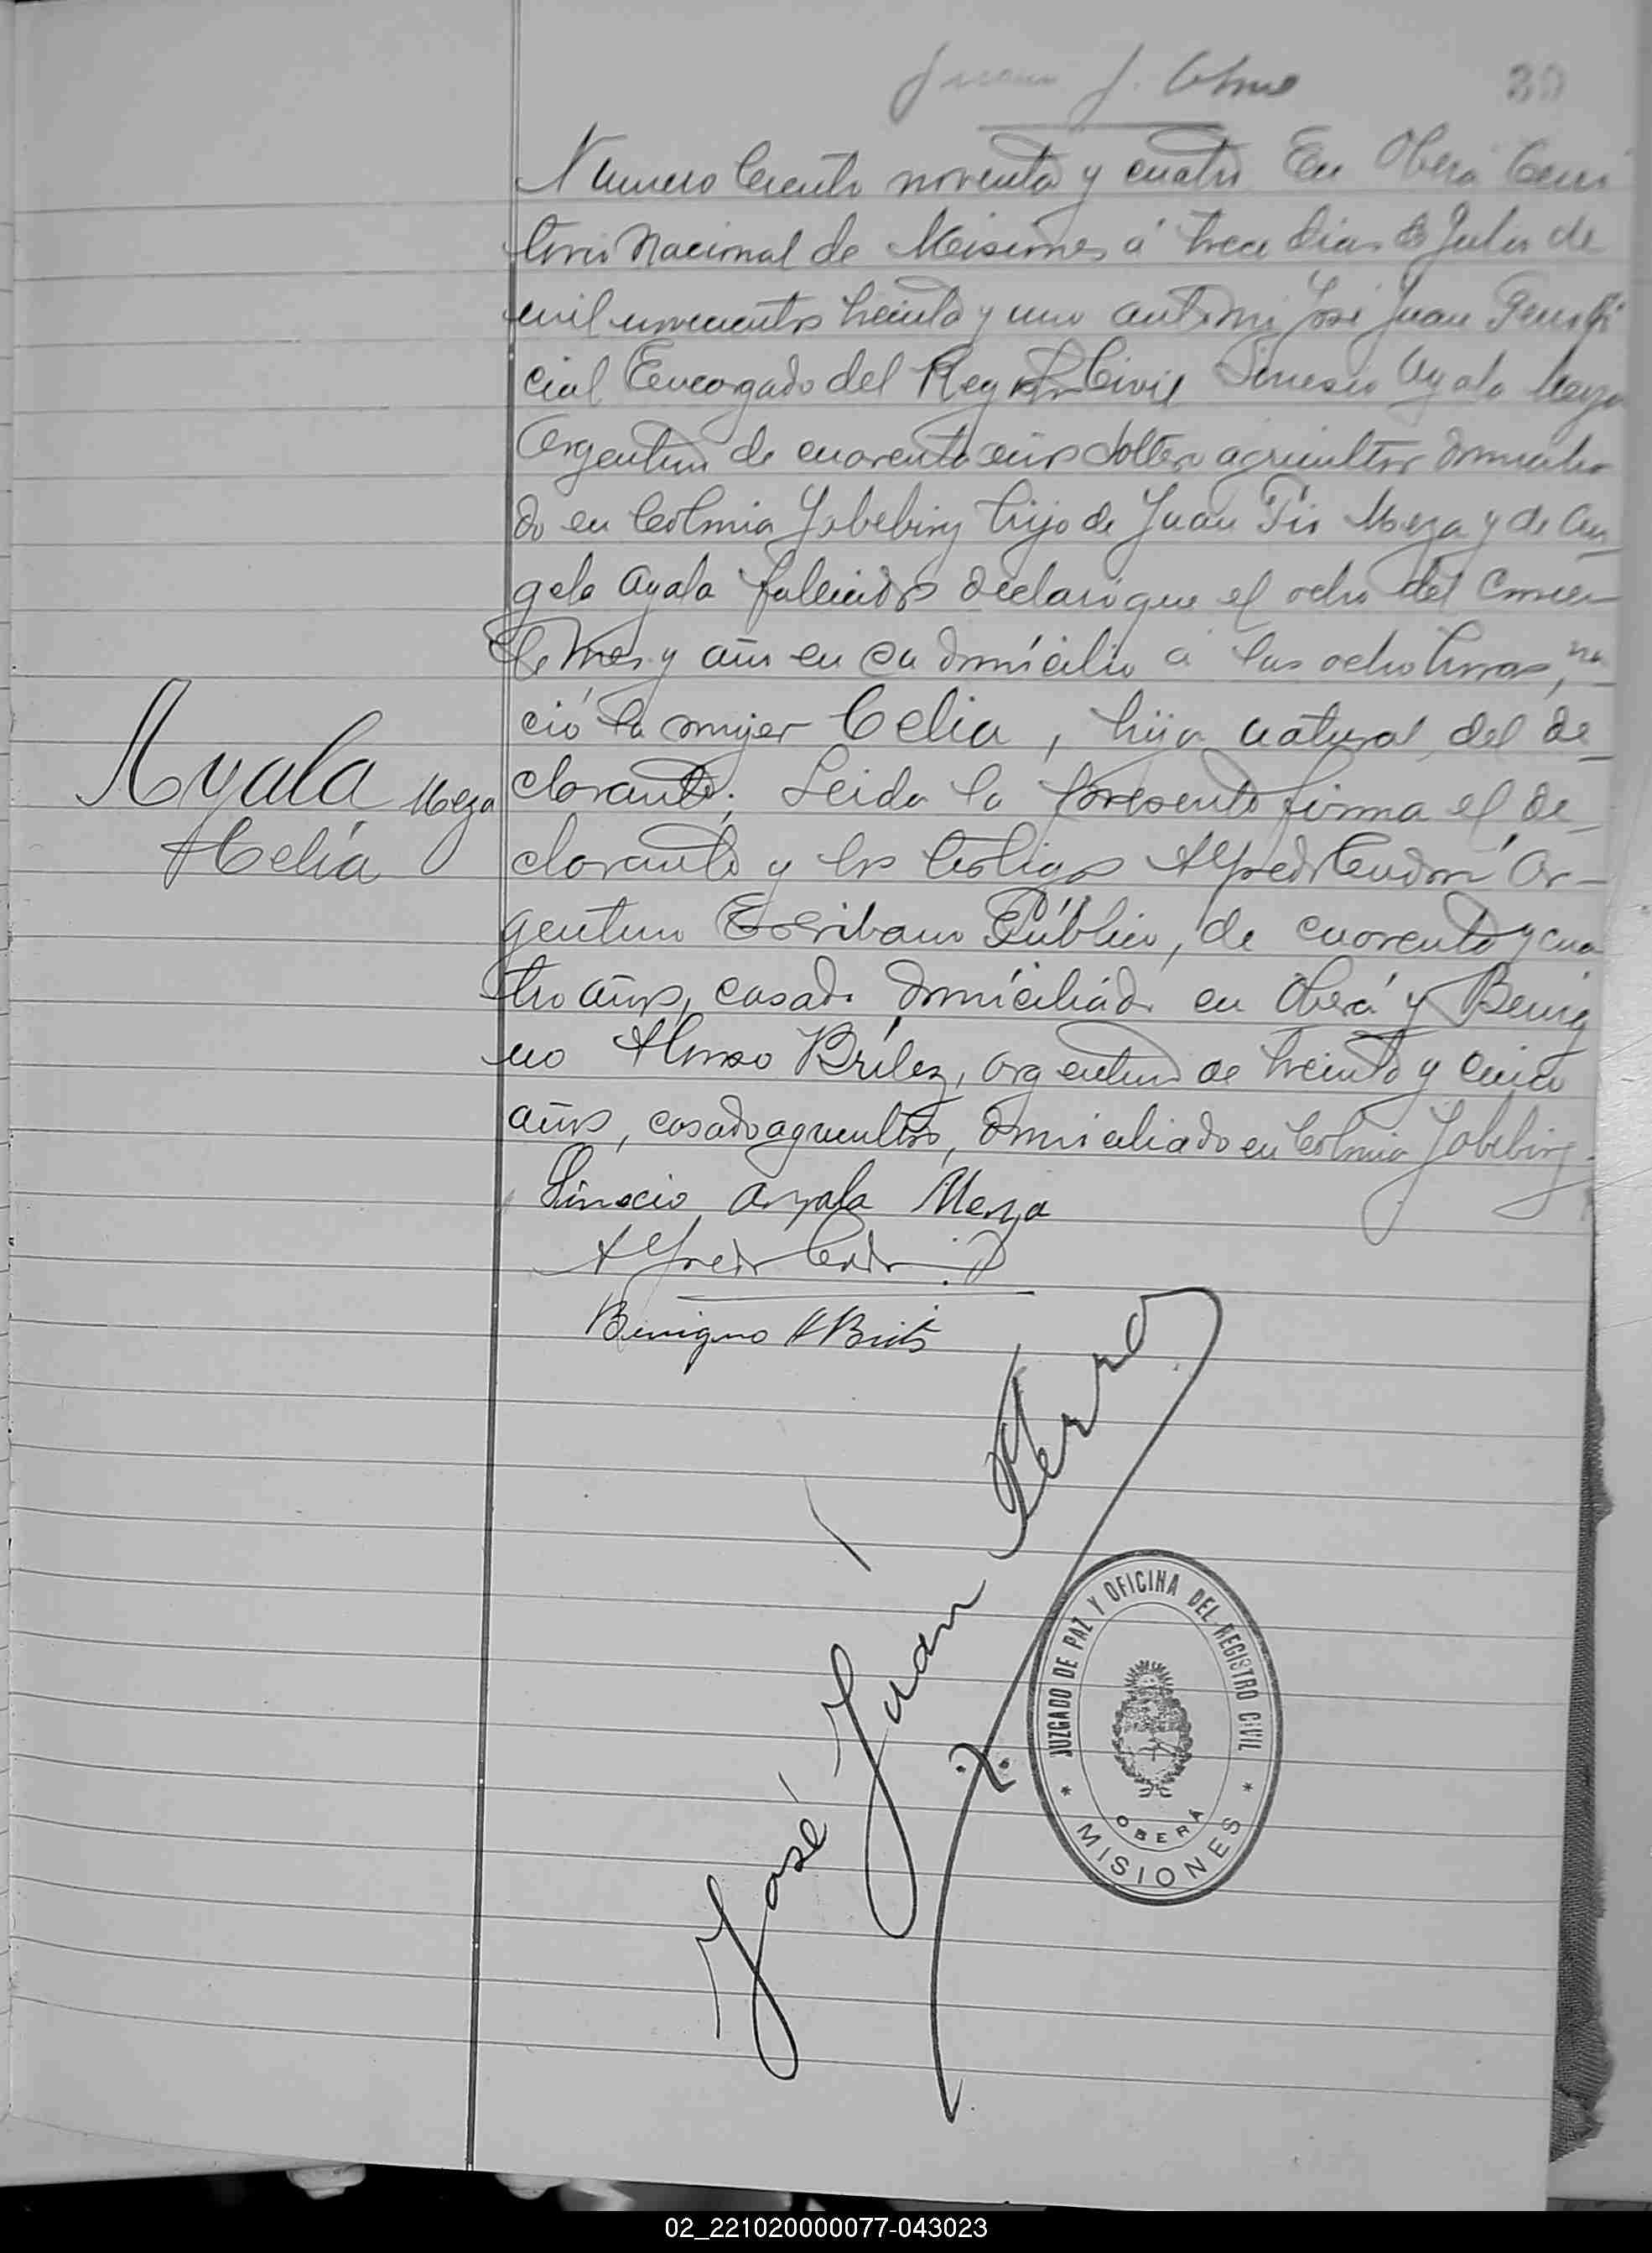 Juan J.
30
Numero Ciento noventa y cuatro. En Oberá Terri
torio Nacional de Misiones á trece dias de Julio de
mil novecientos treinta y uno ante mi José Juan Ferro Ofi
cial Encargado del Registro Civil Sinesio Ayala Meza
Argentino de cuarenta años soltero agricultor domicilia
do en Colonia Yabebiry hijo de Juan Meza y de An_
gela Ayala fallecidos declaró que el ocho del corrien
te mes y año en su domicilio a las ocho horas, na_
ció la mujer Celia, hija natural del de_
clarante. Leida la presente firma el de_
Ayala Meza
Celia
clarante y los testigos Alfredo Ar_
gentino Escribano Público, de cuarenta y cua
tro años, casado domiciliado en Oberá y Benig
no Alonso Brílez, argentino de treinta y cinco
años, casado agricultor, domiciliado en Colonia Yabebiry.
Sinecio Ayala Meza
Alfredo
Benigno A Britz
José Juan Ferro
JUZGADO DE PAZ Y OFICINA DEL REGISTRO CIVIL
OBERA
* MISIONES *
02_221020000077-043023